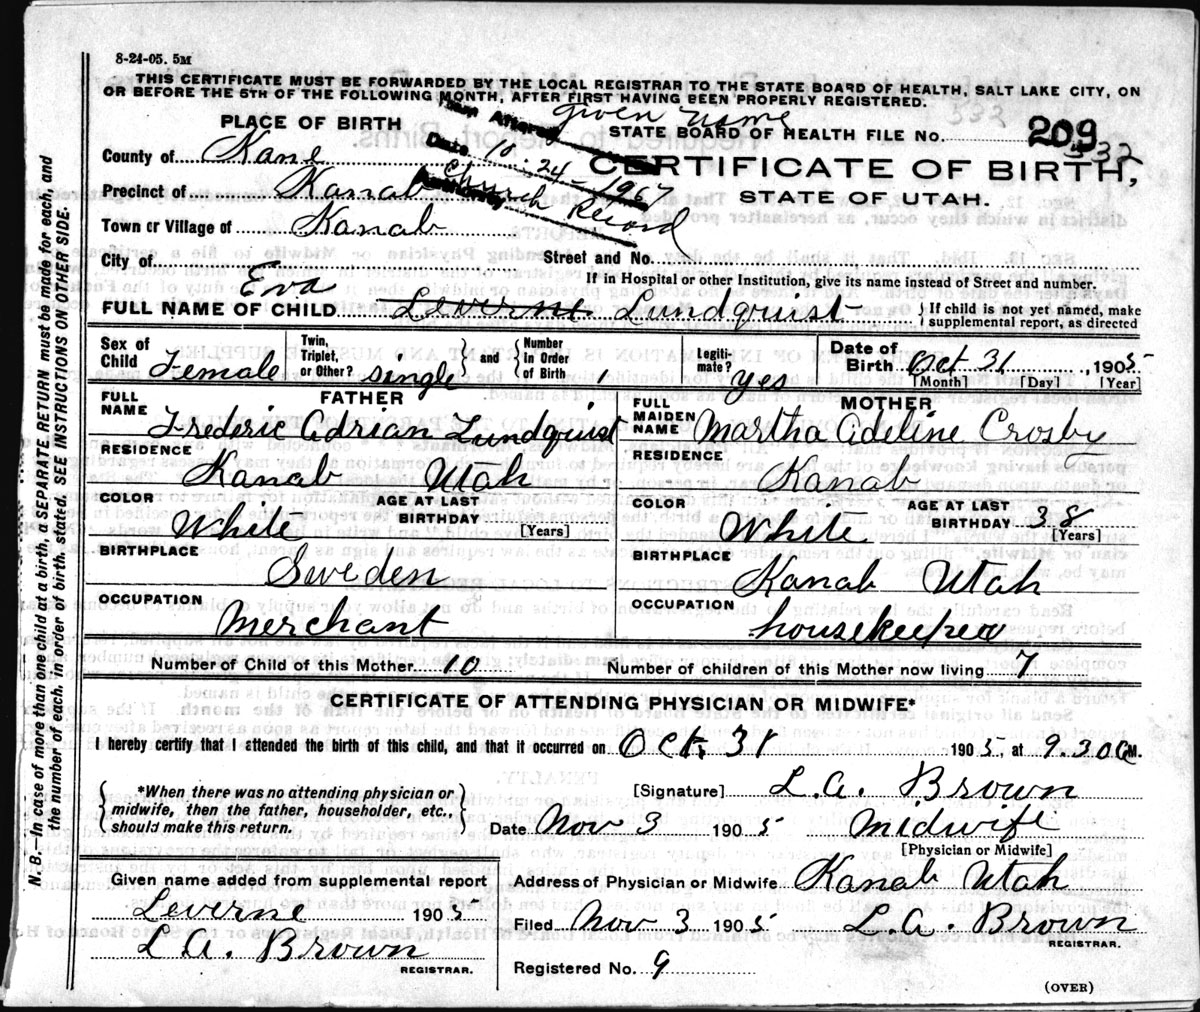 8-24-05. 5M
THIS CERTIFICATE MUST BE FORWARDED BY THE LOCAL REGISTRAR TO THE STATE BOARD OF HEALTH, SALT LAKE CITY, ON
OR BEFORE THE 5TH OF THE FOLLOWING MONTH, AFTER FIRST HAVING BEEN PROPERLY REGISTERED.
Item Altered given name
Date 10-24-1967
Church Record
PLACE OF BIRTH
STATE BOARD OF HEALTH FILE NO. 209
532
332
County of Kane
CERTIFICATE OF BIRTH,
Precinct of Kanab
STATE OF UTAH.
Town or Village of Kanab
City of
Street and No.
If in Hospital or other Institution, give its name instead of Street and number.
Eva
FULL NAME OF CHILD Levernt Lundquist { If child is not yet named, make supplemental report, as directed
Sex of Child Female Twin, Triplet, or Other? single and Number in Order of Birth 1 Legitimate? yes Date of Birth Oct 31 1905
[Month] [Day] [Year]
FATHER
MOTHER
FULL NAME Frederic Adrian Lundquist
FULL MAIDEN NAME Martha Adeline Crosby
RESIDENCE Kanab Utah
RESIDENCE Kanab
COLOR White AGE AT LAST BIRTHDAY [Years]
COLOR White AGE AT LAST BIRTHDAY 38 [Years]
BIRTHPLACE Sweden
BIRTHPLACE Kanab Utah
OCCUPATION Merchant
OCCUPATION housekeeper
Number of Child of this Mother 10 Number of children of this Mother now living 7
CERTIFICATE OF ATTENDING PHYSICIAN OR MIDWIFE*
I hereby certify that I attended the birth of this child, and that it occurred on Oct. 31 1905, at 9.30 a M.
{ *When there was no attending physician or midwife, then the father, householder, etc., should make this return. }
[Signature] L.A. Brown
Date Nov 3 1905 Midwife
[Physician or Midwife]
Given name added from supplemental report
Leverne 1905
L A. Brown
REGISTRAR.
Address of Physician or Midwife Kanab Utah
Filed Nov 3 1905 L.A. Brown
REGISTRAR.
Registered No. 9
(OVER)
N. B.—In case of more than one child at a birth, a SEPARATE RETURN must be made for each, and
the number of each, in order of birth, stated. SEE INSTRUCTIONS ON OTHER SIDE.